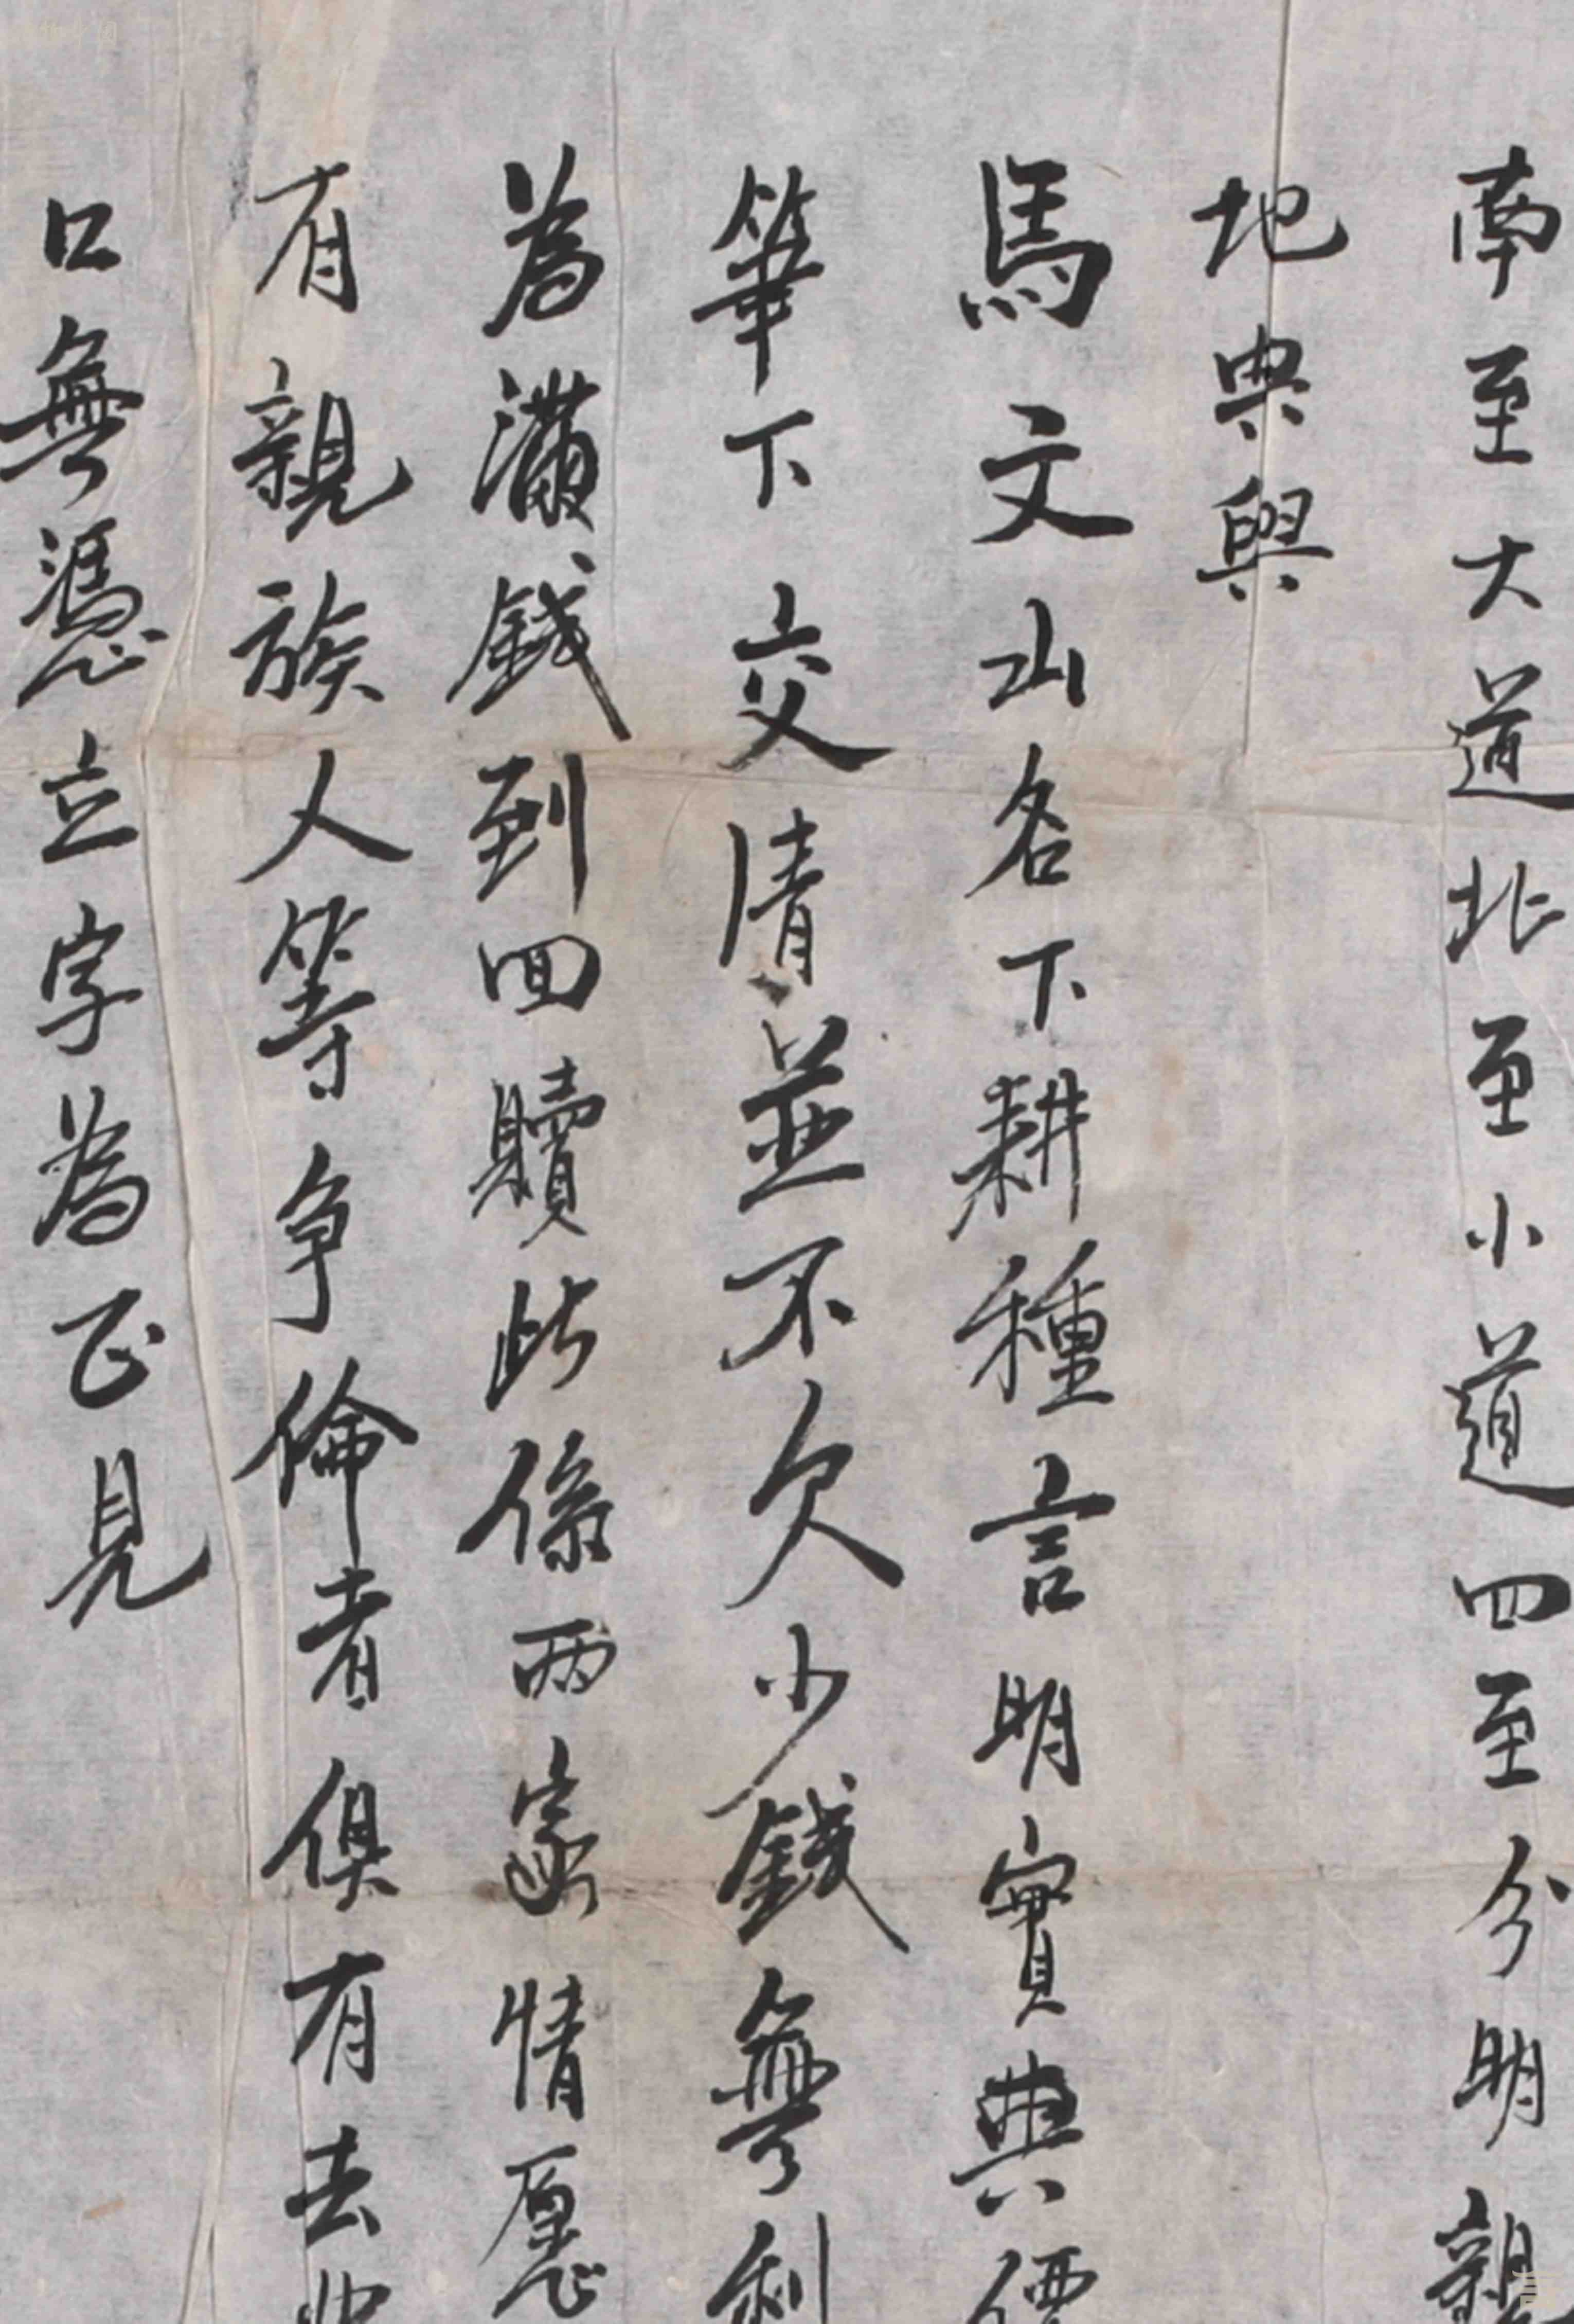 南至大道北至小道四至分明親
地典與
馬文山名下耕種言明實典價
筆下交清並不欠少錢無利
為滿錢到回贖此係兩家情愿
有親族人等争倫者俱有去典
口無憑立字為正見